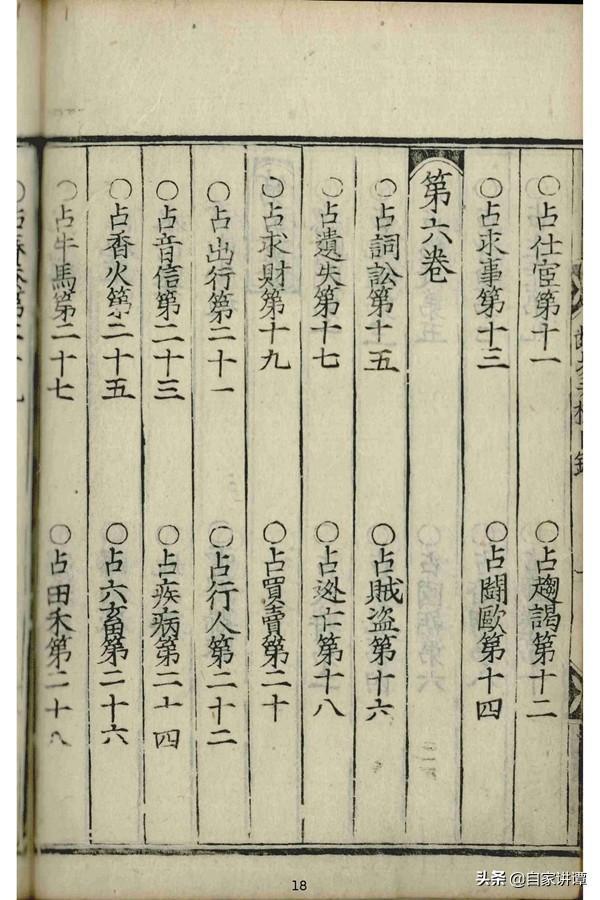 〇占仕宦第十一 〇占趨謁第十二
〇占求事第十三 〇占鬪歐第十四
第六卷
〇占詞訟第十五 〇占賊盗第十六
〇占遺失第十七 〇占逃亡第十八
〇占求財第十九 〇占買賣第二十
〇占出行第二十一 〇占行人第二十二
〇占音信第二十三 〇占疾病第二十四
〇占香火第二十五 〇占六畜第二十六
〇占牛馬第二十七 〇占田禾第二十八
18
头条 @自家讲谭